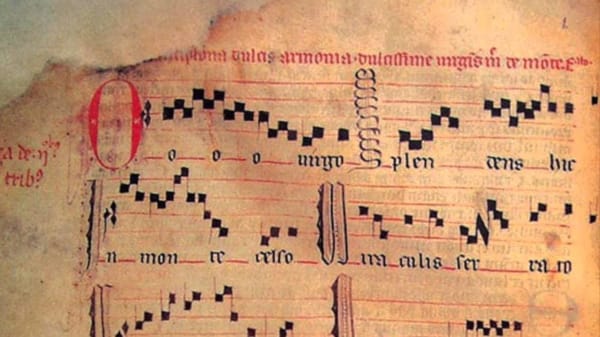 tiphona dulcis armonia. dulcissime uirgis
trib⁹
O o o o uirgo Splen dens hic
In mon te celso Mira culis ser ra to